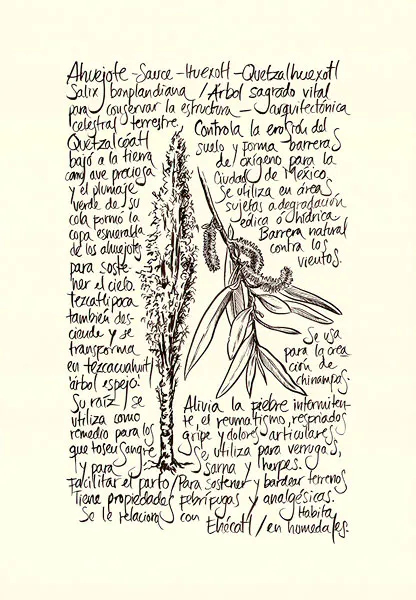 Ahuejote - Sauce - Huexotl - Quetzalhuexotl
Salix bonplandiana / Árbol sagrado vital
para conservar la estructura - arquitectónica
celestral terrestre,
Quetzalcóatl
bajó a la tierra
como ave preciosa
y el plumaje
verde de su
cola formó la
copa esmeralda
de los ahuejotes
para soste-
ner el cielo.
Tezcatlipoca
también des-
ciende y se
transforma
en tezcacuahuitl
"árbol espejo".
Su raíz / se
utiliza como
remedio para los
que tosen sangre
y para
Facilitar el parto / Para sostener y bardear terrenos
Controla la erosión del
suelo y forma barreras
de oxígeno para la
Ciudad de México
Se utiliza en áreas
sujetas a degradación
eólica ó hídrica.
Barrera natural
contra los
vientos.
Se usa
para la crea
ción de
chinampas.
Alivia la fiebre intermiten-
te, el reumatismo, resfriados
gripe y dolores articulares.
Se utiliza para verrugas,
sarna y herpes.
Tiene propiedades febrífugas y analgésicas.
Se le relaciona con Ehécatl / Habita
en humedales.